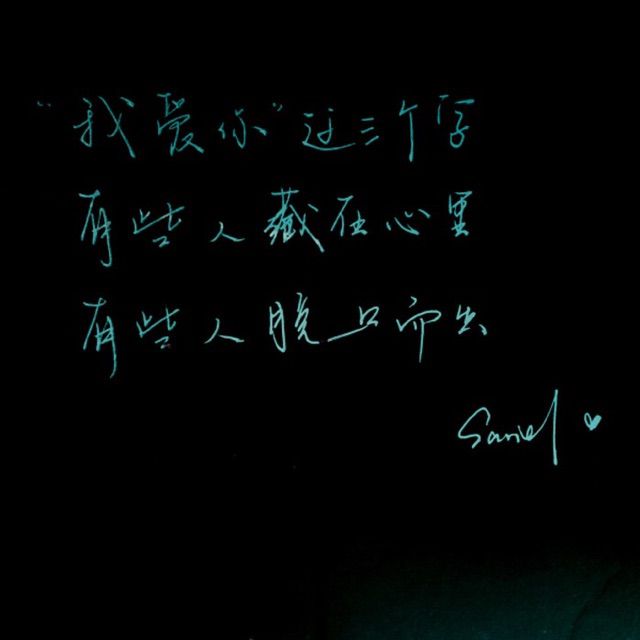 "我爱你"这三个字
有些人藏在心里
有些人脱口而出